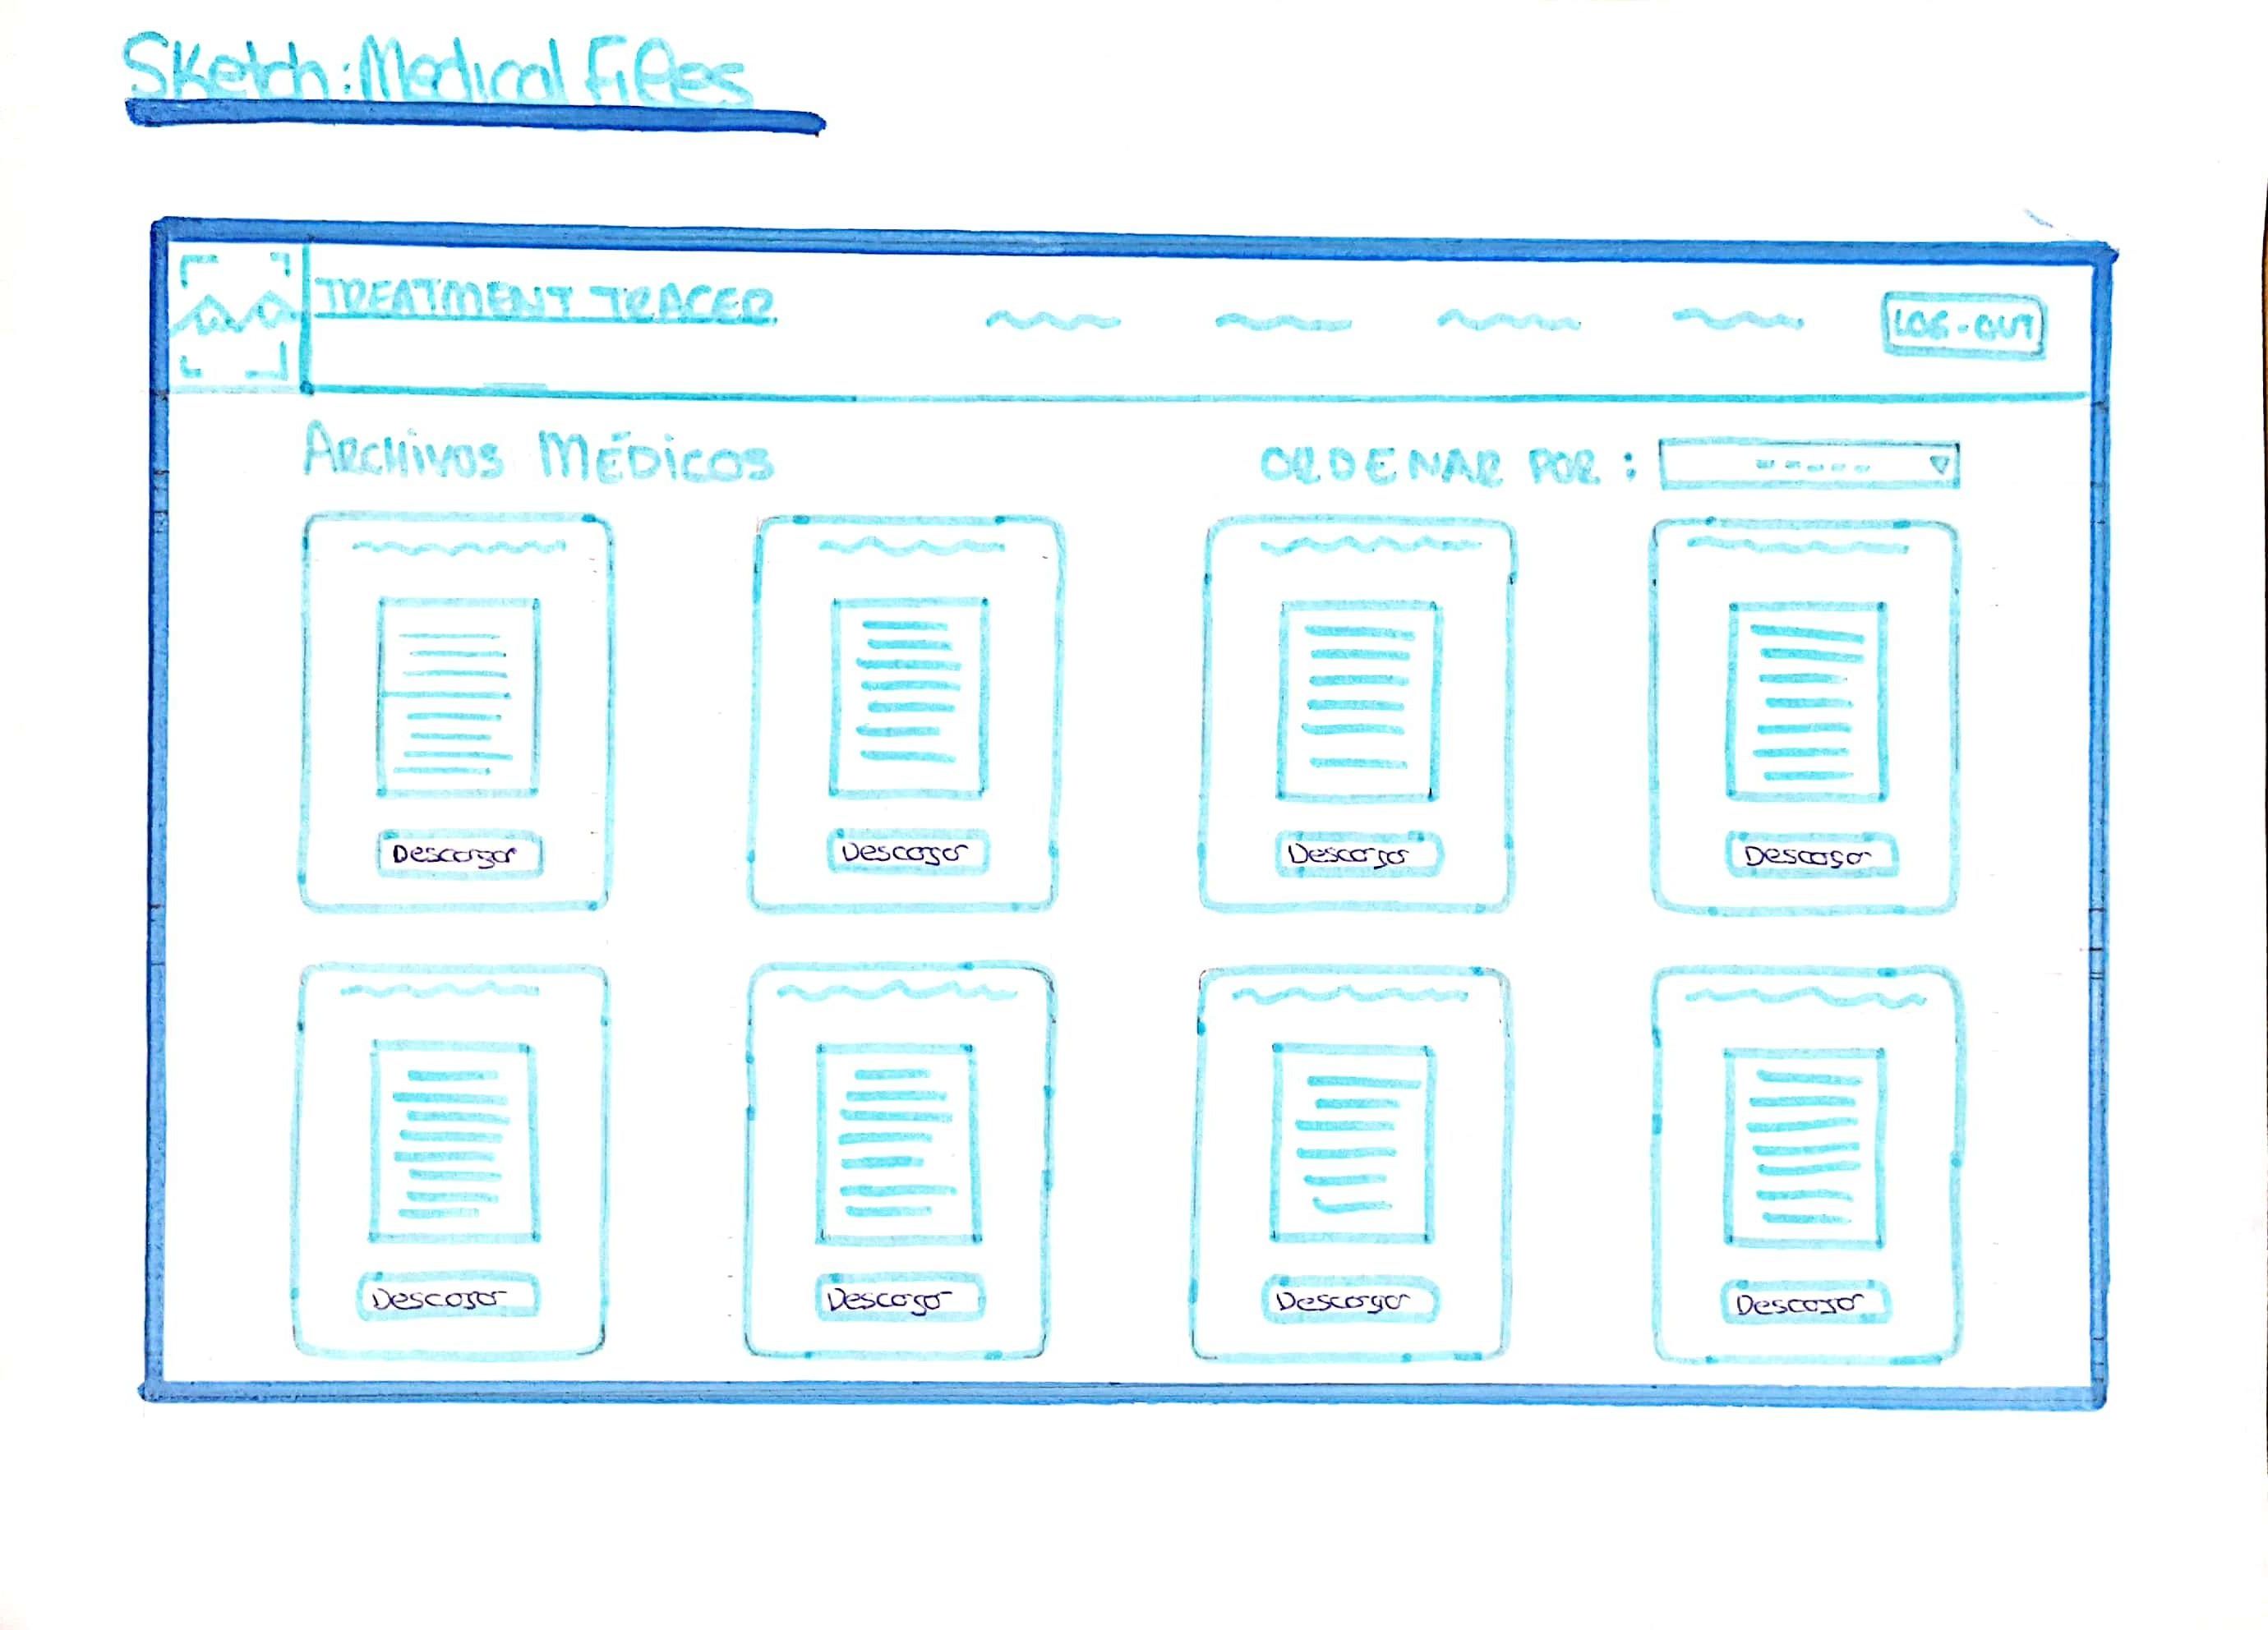 Sketch: Medical Files
TREATMENT TRACER
LOG-OUT
Archivos Médicos
ORDENAR POR :
Descargar
Descagar
Descargar
Descagar
Descagar
Descargar
Descargar
Descagar